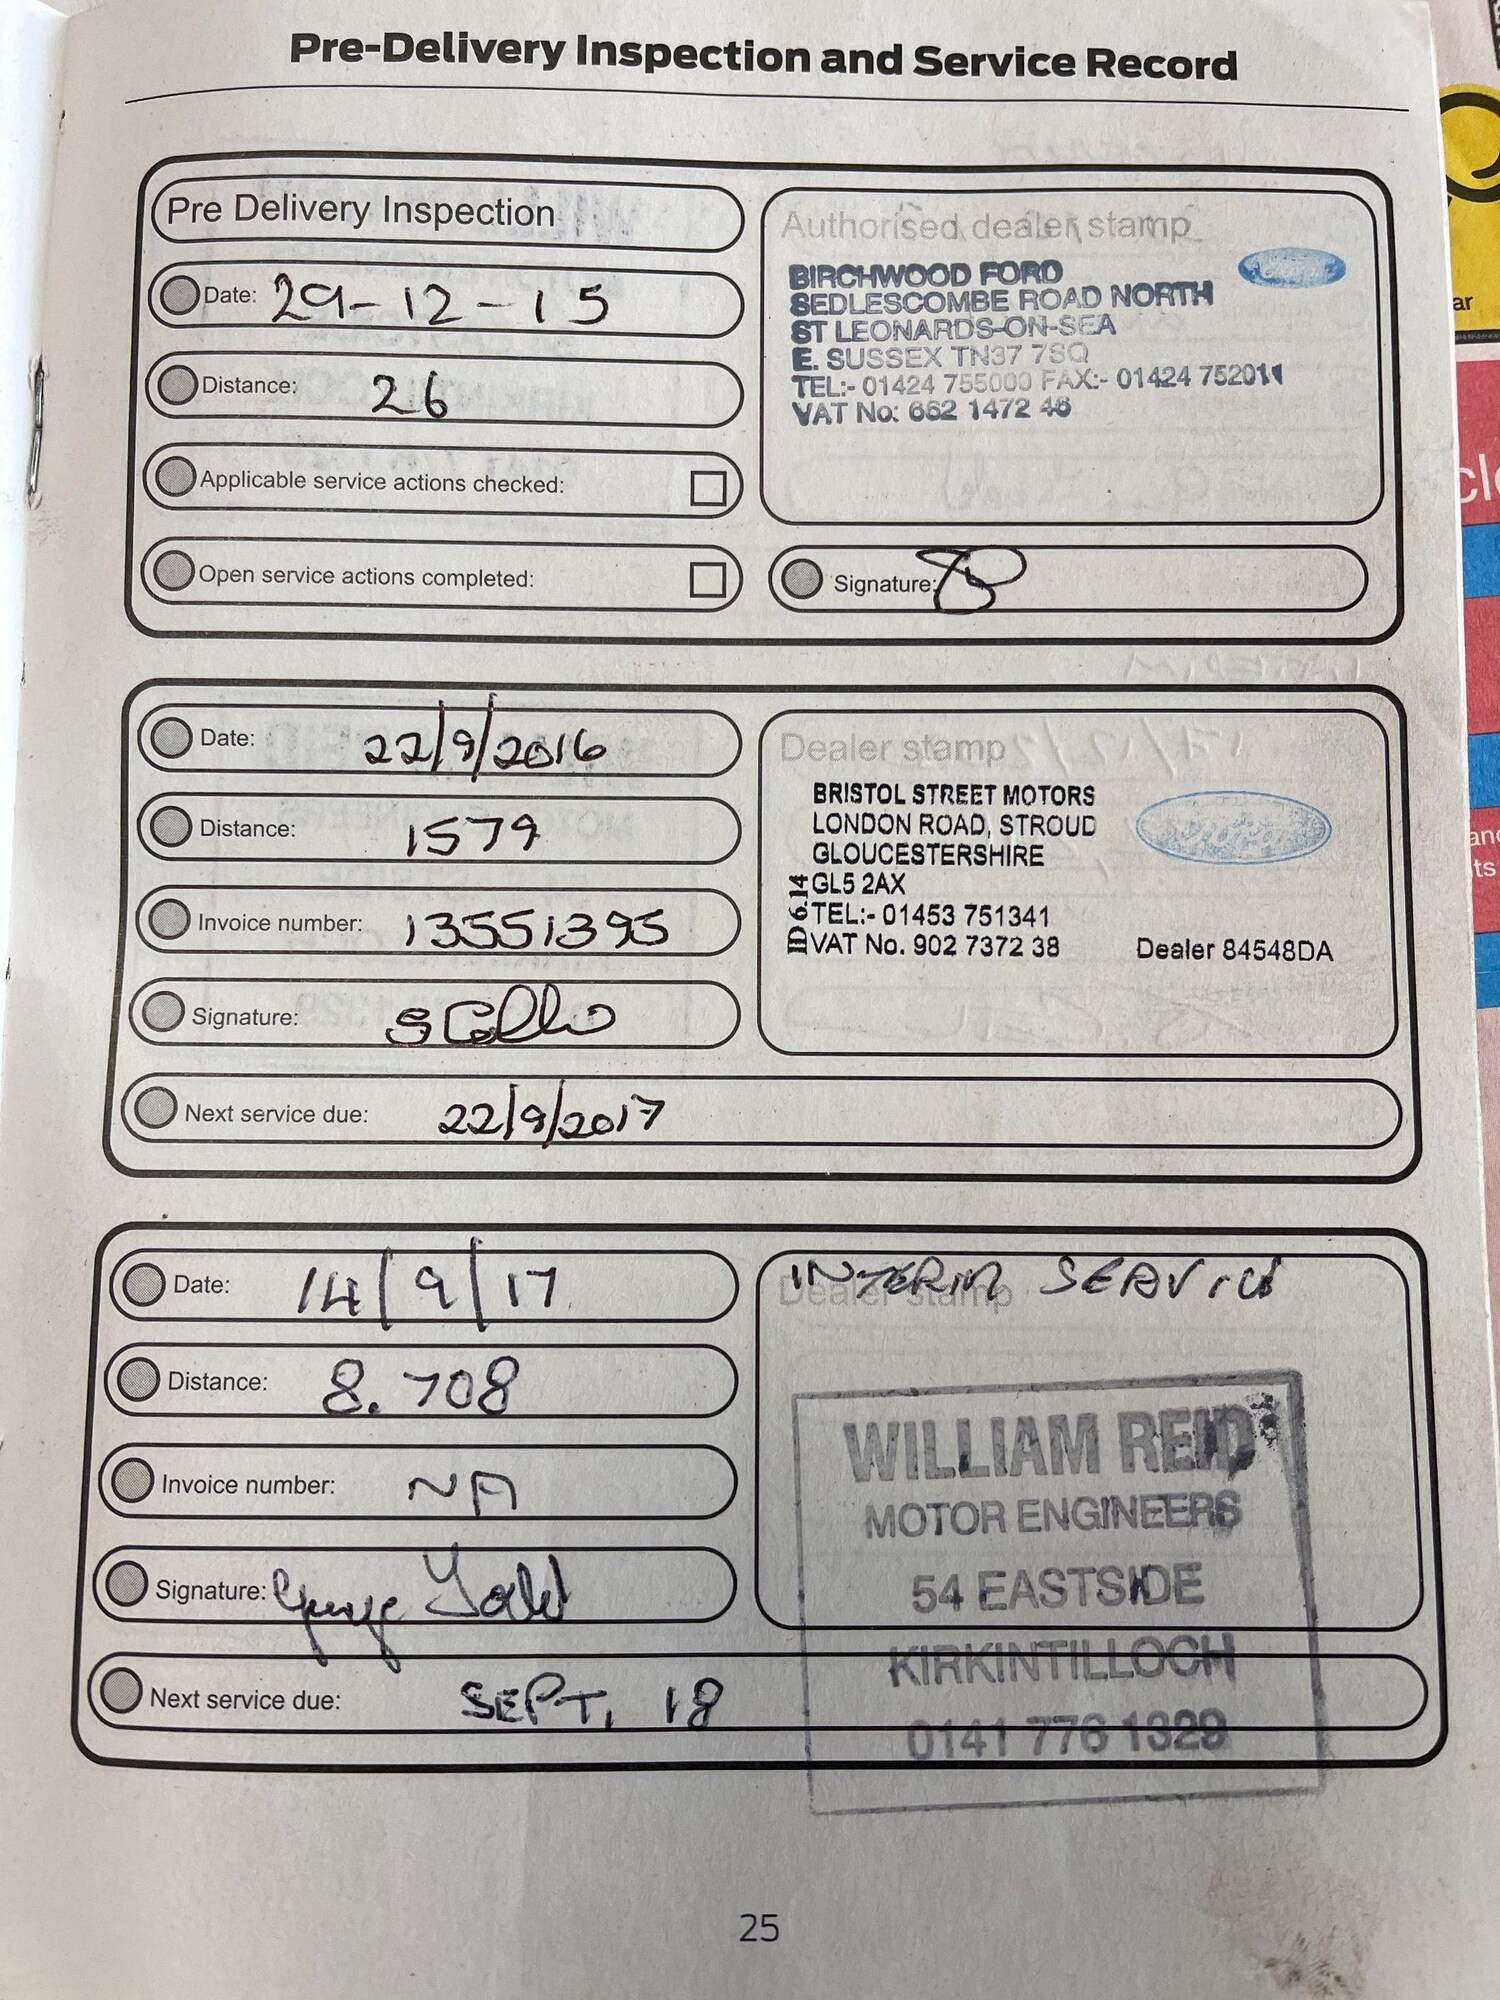 Pre-Delivery Inspection and Service Record
Pre Delivery Inspection
Date: 29-12-15
Distance: 26
Applicable service actions checked:
Open service actions completed:
Authorised dealer stamp
BIRCHWOOD FORD
SEDLESCOMBE ROAD NORTH
ST LEONARDS-ON-SEA
E. SUSSEX TN37 7SQ
TEL:- 01424 755000 FAX:- 01424 752011
VAT No: 662 1472 46
Ford
Signature:
Date: 22/9/2016
Distance: 1579
Invoice number: 13551395
Signature:
Next service due: 22/9/2017
Dealer stamp
BRISTOL STREET MOTORS
LONDON ROAD, STROUD
GLOUCESTERSHIRE
GL5 2AX
TEL:- 01453 751341
VAT No. 902 7372 38
Dealer 84548DA
ID 6.14
Ford
Date: 14/9/17
Distance: 8.708
Invoice number: NA
Signature: George
Next service due: SEPT, 18
INTERIM SERVICE
Dealer stamp
WILLIAM REID
MOTOR ENGINEERS
54 EASTSIDE
KIRKINTILLOCH
0141 776 1329
25